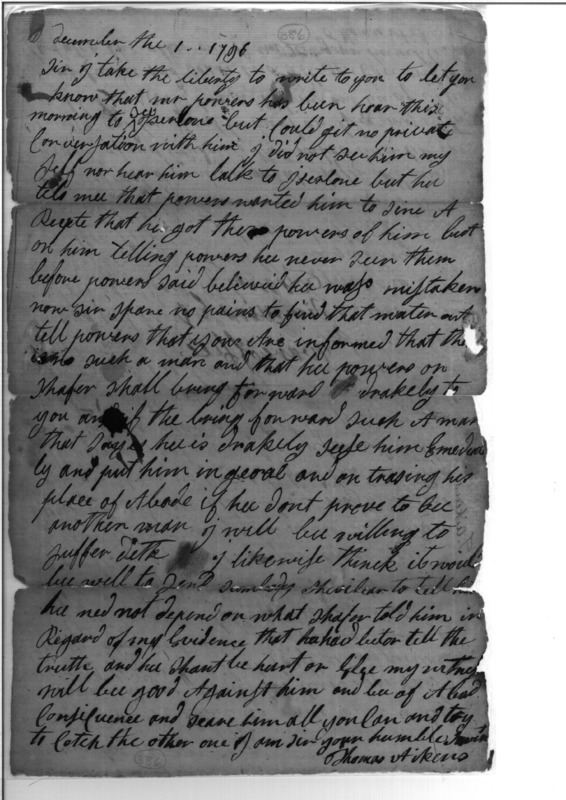 december the 1.. 1796
Sir I take the liberty to write to you to let you
know that mr powers has been hear this
morning to but Could git no private
Conversation with him I did not see him my
Self nor hear him talk to but hee
tels mee that powers wanted him to sine A
Recete that he got them powers of him but
on him telling powers hee never seen them
before powers said believed hee wass mistaken
now sir spare no pains to find that mater out
tell powers that you Are informed that the
is no such a man and that hee powers or
Shafer shall bring forward drakely to
you and if the bring forward such A man
that Says hee is drakely seese him Emediat
ly and put him in geoal and on trasing his
place of Abode if hee dont prove to bee
another man I will bee willing to
suffer deth I likewise thinck it would
bee well to Send to tell
hee ned not depend on what Shafer told him in
Regard of my Evidence that hee had beter tell the
truth and hee shant be hurt or Else my witnes
will bee good Against him and bee of A bad
Consequence and scare him all you Can and try
to Cotch the other one I am sir your humble
Thomas Aikens